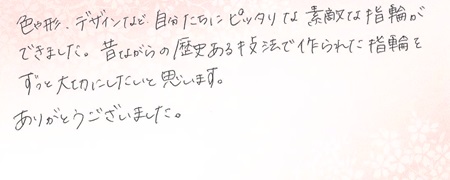 色や形、デザインなど、自分たちにピッタリな素敵な指輪が
できました。昔ながらの歴史ある技法で作られた指輪を
ずっと大切にしたいと思います。
ありがとうございました。